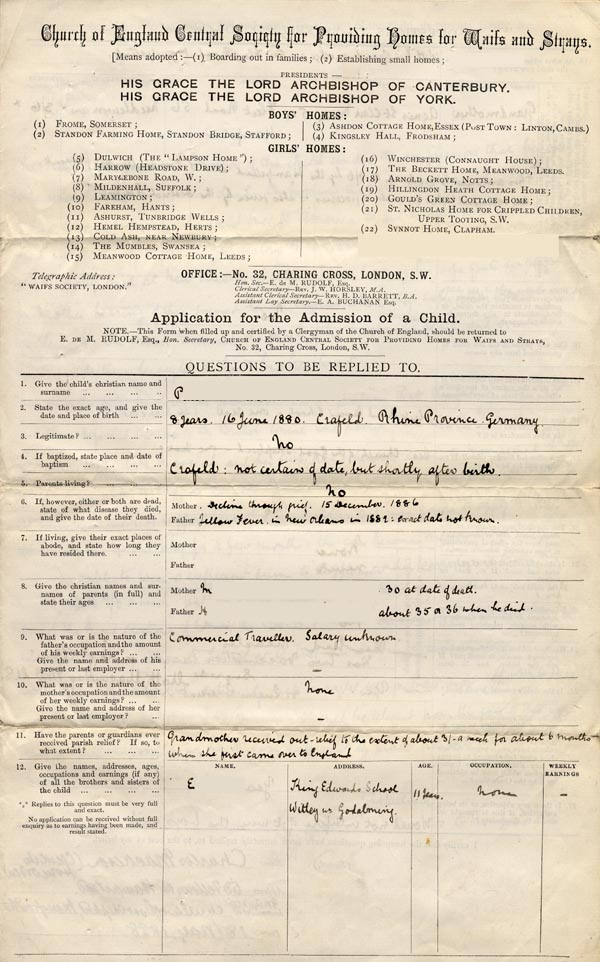 Church of England Central Society for Providing Homes for Waifs and Strays.
[Means adopted:—(1) Boarding out in families; (2) Establishing small homes;
PRESIDENTS—
HIS GRACE THE LORD ARCHBISHOP OF CANTERBURY.
HIS GRACE THE LORD ARCHBISHOP OF YORK.
BOYS' HOMES:
(1) FROME, SOMERSET;
(2) STANDON FARMING HOME, STANDON BRIDGE, STAFFORD;
(3) ASHDON COTTAGE HOME, ESSEX (POST TOWN: LINTON, CAMBS.)
(4) KINGSLEY HALL, FRODSHAM;
GIRLS' HOMES:
(5) DULWICH (THE "LAMPSON HOME");
(6) HARROW (HEADSTONE DRIVE);
(7) MARYLEBONE ROAD, W.;
(8) MILDENHALL, SUFFOLK;
(9) LEAMINGTON;
(10) FAREHAM, HANTS;
(11) ASHURST, TUNBRIDGE WELLS;
(12) HEMEL HEMPSTEAD, HERTS;
(13) COLD ASH, NEAR NEWBURY;
(14) THE MUMBLES, SWANSEA;
(15) MEANWOOD COTTAGE HOME, LEEDS;
(16) WINCHESTER (CONNAUGHT HOUSE);
(17) THE BECKETT HOME, MEANWOOD, LEEDS.
(18) ARNOLD GROVE, NOTTS;
(19) HILLINGDON HEATH COTTAGE HOME;
(20) GOULD'S GREEN COTTAGE HOME;
(21) ST. NICHOLAS HOME FOR CRIPPLED CHILDREN,
UPPER TOOTING, S.W.
(22) SYNNOT HOME, CLAPHAM.
Telegraphic Address:
"WAIFS SOCIETY, LONDON."
OFFICE:—No. 32, CHARING CROSS, LONDON, S.W.
Hon. Sec.—E. de M. RUDOLF, Esq.
Clerical Secretary—REV. J. W. HORSLEY, M.A.
Assistant Clerical Secretary—REV. H. D. BARRETT, B.A.
Assistant Lay Secretary—E. A. BUCHANAN Esq.
Application for the Admission of a Child.
NOTE.—This Form when filled up and certified by a Clergyman of the Church of England, should be returned to
E. DE M. RUDOLF, Esq., Hon. Secretary, CHURCH OF ENGLAND CENTRAL SOCIETY FOR PROVIDING HOMES FOR WAIFS AND STRAYS,
No. 32, Charing Cross, London, S.W.
QUESTIONS TO BE REPLIED TO.
1. Give the child's christian name and
surname ... ... ... ...
P
2. State the exact age, and give the
date and place of birth ... ...
8 years. 16 June 1880. Crafeld. Rhine Province Germany
3. Legitimate? ... ... ... ...
No
4. If baptized, state place and date of
baptism ... ... ... ...
Crafeld: not certain of date, but shortly after birth.
5. Parents living? ... ... ...
No
6. If, however, either or both are dead,
state of what disease they died,
and give the date of their death.
Mother. Decline through grief. 15 December. 1886
Father Yellow Fever. in New Orleans in 1882: exact date not known.
7. If living, give their exact places of
abode, and state how long they
have resided there. ... ...
Mother
Father
8. Give the christian names and sur-
names of parents (in full) and
state their ages ... ... ...
Mother M 30 at date of death.
Father A about 35 or 36 when he died.
9. What was or is the nature of the
father's occupation and the amount
of his weekly earnings? ... ...
Give the name and address of his
present or last employer ... ...
Commercial Traveller. Salary unknown
—
10. What was or is the nature of the
mother's occupation and the amount
of her weekly earnings? ... ...
Give the name and address of her
present or last employer? ...
None
—
11. Have the parents or guardians ever
received parish relief? If so, to
what extent? ... ... ...
Grandmother received out-relief to the extent of about 3/- a week for about 6 months
when she first came over to England
12. Give the names, addresses, ages,
occupations and earnings (if any)
of all the brothers and sisters of
the child ... ... ... ...
*** Replies to this question must be very full
and exact.
No application can be received without full
enquiry as to earnings having been made, and
result stated.
NAME. ADDRESS. AGE. OCCUPATION. WEEKLY
EARNINGS
E King Edwards School 11 years. None —
Witley nr Godalming.